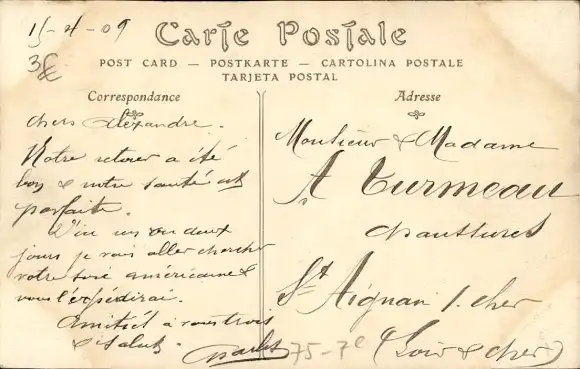 15-4-09
3€
Carte Postale
POST CARD — POSTKARTE — CARTOLINA POSTALE
TARJETA POSTAL
Correspondance
chers Alexandre.
Notre retour a été
bon & notre santé est
parfaite.
D'ici un ou deux
jours je vais aller chercher
votre soie américaine &
vous l'expédirai.
Amitiés à vous trois
& saluts.
Charles
Adresse
Monsieur & Madame
A Turmeau
chaussures
St Aignan s. cher
(Loir & cher)
75-7e